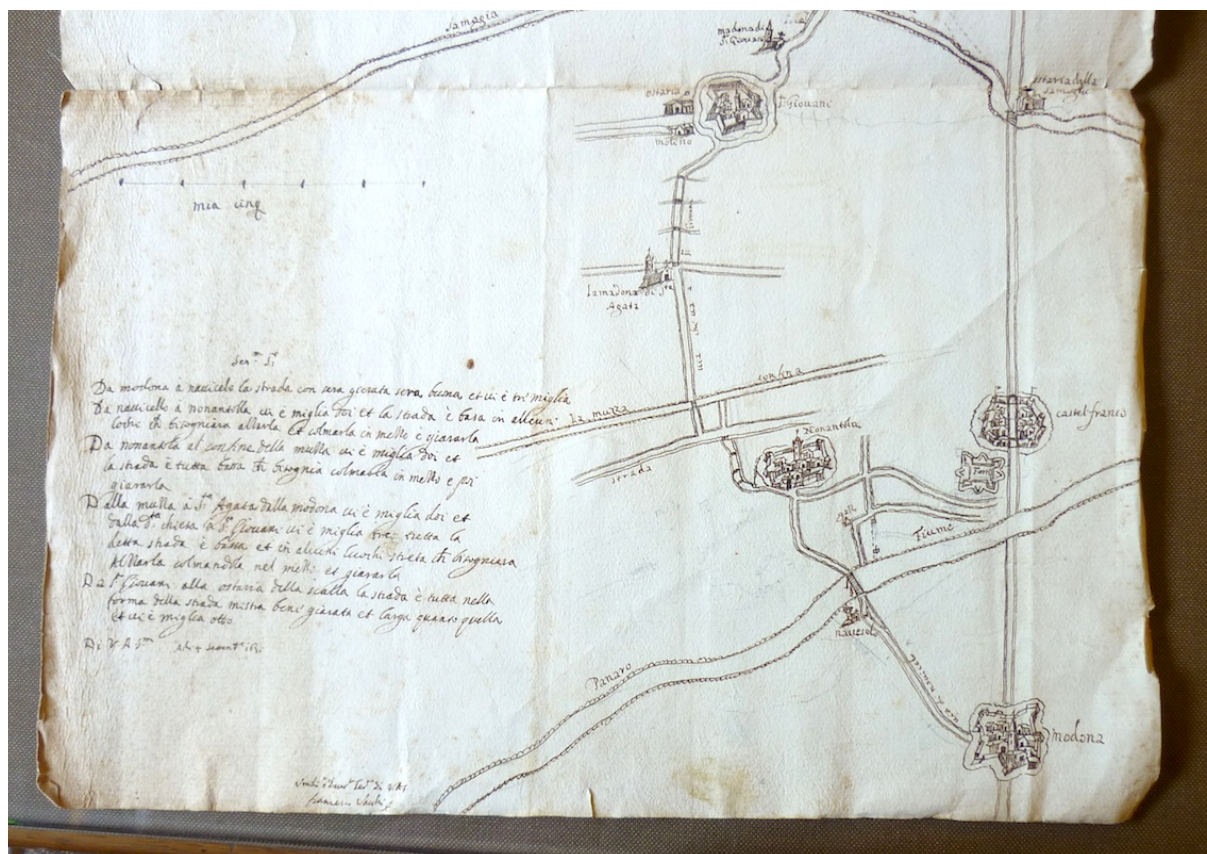 samogia
madona di
S. Giovani
ostaria
molino
S. Giovani
ostaria della
samogia
mia cinq
la madona di S.ta
Agata
via che va a
confina
La muzza
strada
Nonantola
castel franco
Forte
Fiume
Panaro
navicel
Modona
Ser.mo S.r
Da modona à navicelo la strada con sera gierata sera buona, et vi è tri miglia
Da navicello à nonantolla vi è miglia doi et la strada è basa in allcuni
lochi ch bisogniara alzarla et colmarla in mezzo è giararla
Da nonantola al confine della muzza vi è miglia doi et
la strada è tutta bassa ch bisognia colmarla in mezzo e poi
giararla
Dalla muzza à S.ta Agata dalla modona vi è miglia doi et
dalla d.ta chiesa à S. Giovani vi è miglia tre tutta la
detta strada è bassa et in alcuni luochi streta ch bisogniara
Allzarla colmandola nel mezzo et giararla
Da S. Giovani alla ostaria della scalla la strada è tutta nella
forma della strada mistra bene giarata et larga quanto quella
et vi è miglia otto
Di V A S.ma
Francesco